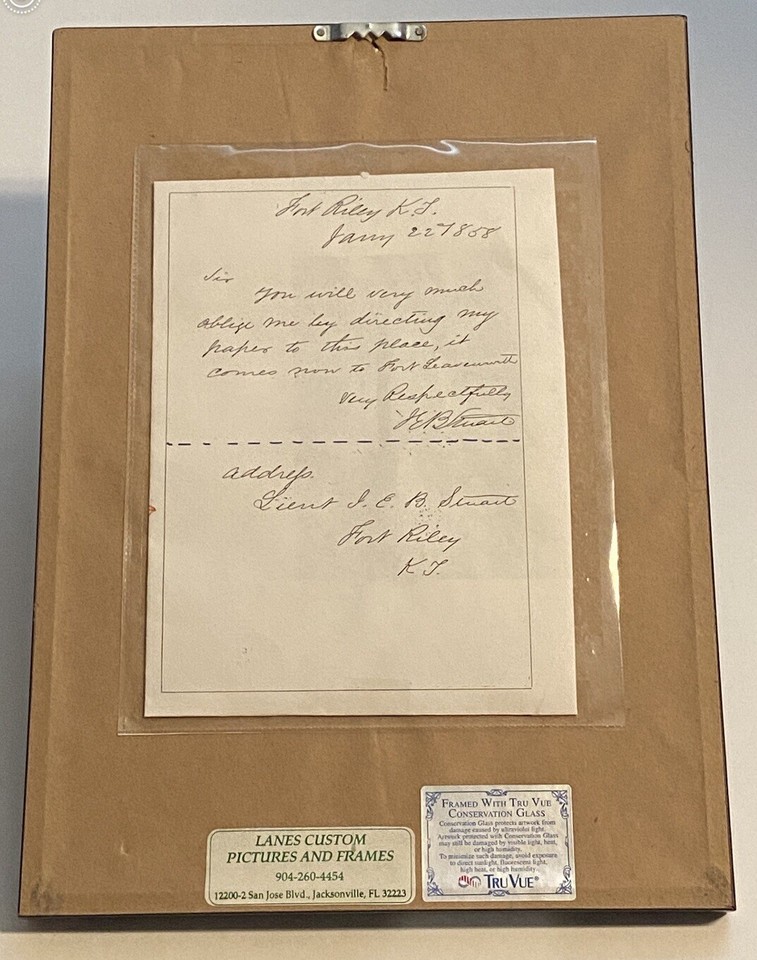 Fort Riley K.T.
Jany 22 1858
Sir
You will very much
oblige me by directing my
paper to this place, it
comes now to Fort Leavenworth
Very Respectfully
JEBStuart
address.
Lieut J. E. B. Stuart
Fort Riley
K.T.
LANES CUSTOM
PICTURES AND FRAMES
904-260-4454
12200-2 San Jose Blvd., Jacksonville, FL 32223
FRAMED WITH TRU VUE
CONSERVATION GLASS
Conservation Glass protects artwork from
damage caused by ultraviolet light.
Artwork protected with Conservation Glass
may still be damaged by visible light, heat,
or high humidity.
To minimize such damage, avoid exposure
to direct sunlight, fluorescent light,
high heat, or high humidity.
TRU VUE®